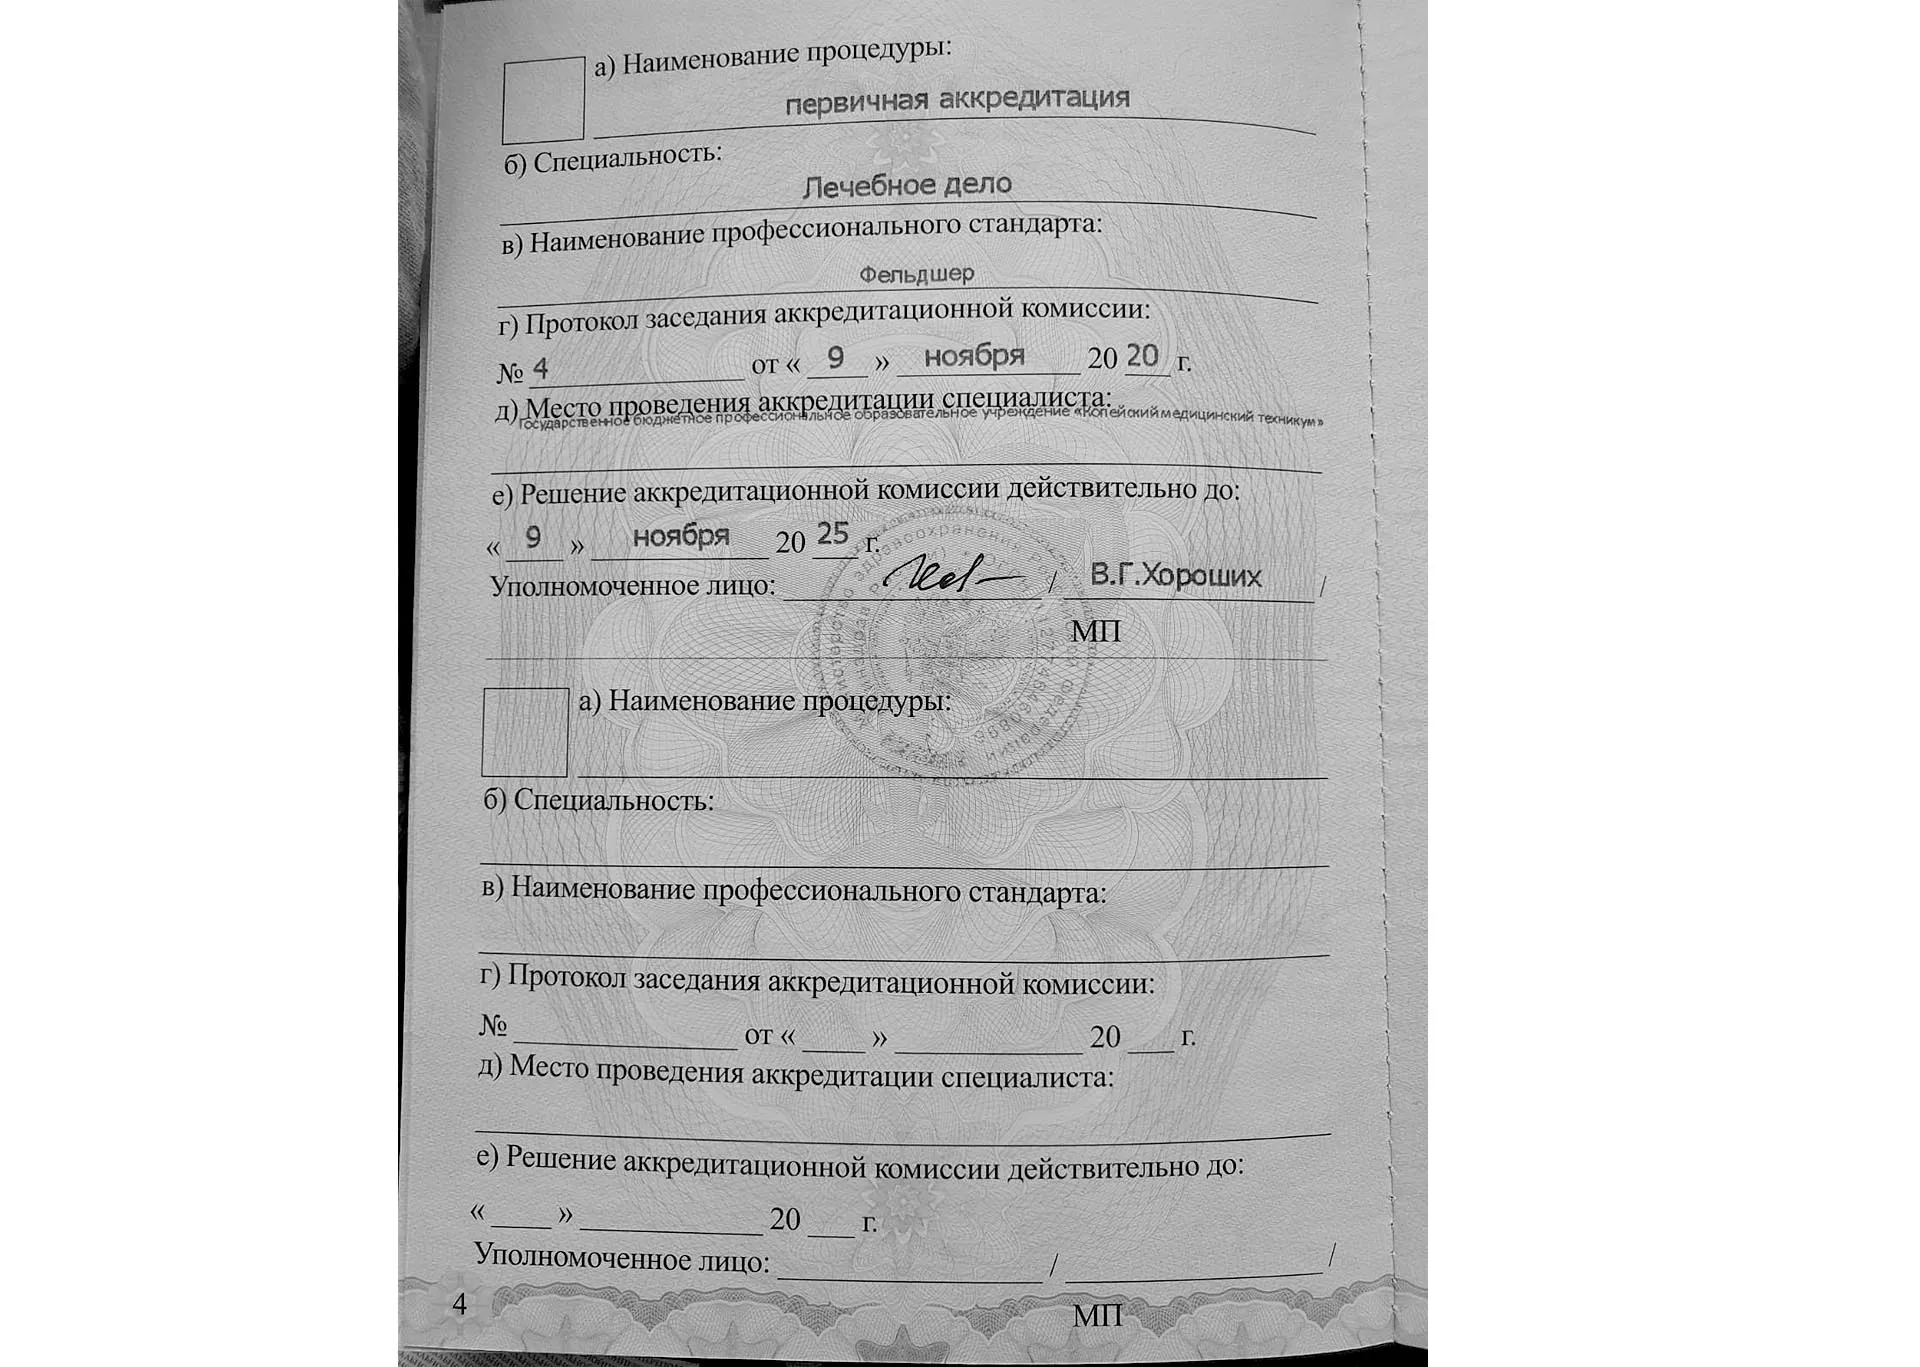 а) Наименование процедуры:
первичная аккредитация
б) Специальность:
Лечебное дело
в) Наименование профессионального стандарта:
Фельдшер
г) Протокол заседания аккредитационной комиссии:
№ 4 от « 9 » ноября 20 20 г.
д) Место проведения аккредитации специалиста:
Государственное бюджетное профессиональное образовательное учреждение «Копейский медицинский техникум»
е) Решение аккредитационной комиссии действительно до:
« 9 » ноября 20 25 г.
Уполномоченное лицо: / В.Г.Хороших /
МП
а) Наименование процедуры:
б) Специальность:
в) Наименование профессионального стандарта:
г) Протокол заседания аккредитационной комиссии:
№ от « » 20 г.
д) Место проведения аккредитации специалиста:
е) Решение аккредитационной комиссии действительно до:
« » 20 г.
Уполномоченное лицо: / /
4
МП